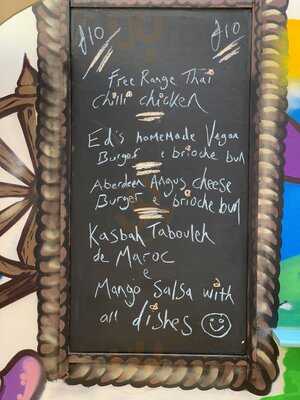 £10 £10
Free Range Thai
chilli chicken
Ed's homemade Vegan
Burger e brioche bun
Aberdeen Angus cheese
Burger e brioche bun
Kasbah Tabouleh
de Maroc
e
Mango Salsa with
all dishes